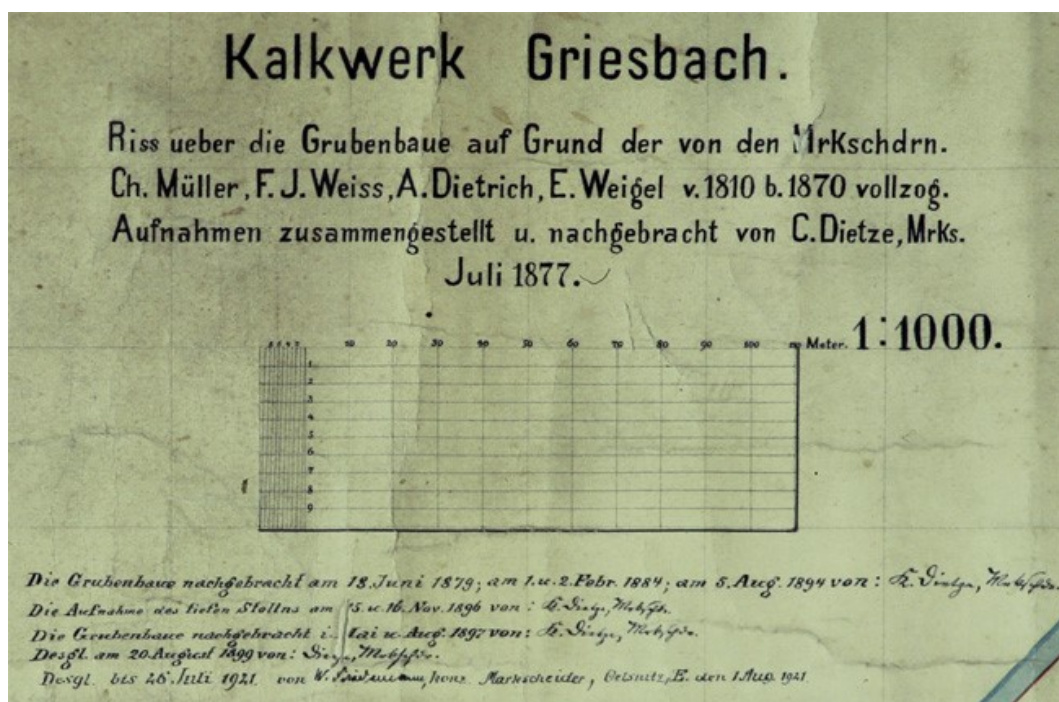 Kalkwerk Griesbach.
Riss ueber die Grubenbaue auf Grund der von den MrKschdrn.
Ch. Müller, F. J. Weiss, A. Dietrich, E. Weigel v. 1810 b. 1870 vollzog.
Aufnahmen zusammengestellt u. nachgebracht von C. Dietze, Mrks.
Juli 1877.
10 20 30 40 50 60 70 80 90 100 Meter. 1:1000.
1
2
3
4
5
6
7
8
9
Die Grubenbaue nachgebracht am 18. Juni 1879; am 1. u. 2. Febr. 1884; am 5. Aug. 1894 von:
Die Aufnahme des tiefen Stollns am 15. u. 16. Nov. 1896 von:
Die Grubenbaue nachgebracht i. Mai u. Aug. 1897 von:
Desgl. am 20. August 1899 von:
Desgl. bis 26. Juli 1921 von W. konz. Markscheider, Oelsnitz, E. den 1. Aug. 1921